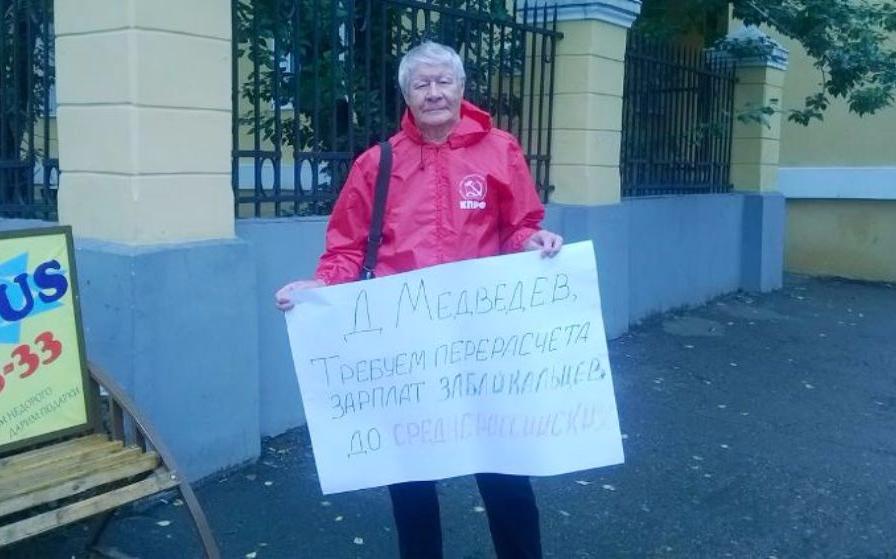 US
-33
М НЕДОРОГО
ДАРИМ ПОДАРКИ
КПРФ
Д МЕДВЕДЕВ,
ТРЕБУЕМ ПЕРЕРАСЧЕТА
ЗАРПЛАТ ЗАБАЙКАЛЬЦЕВ
ДО СРЕДНЕРОССИЙСКИХ